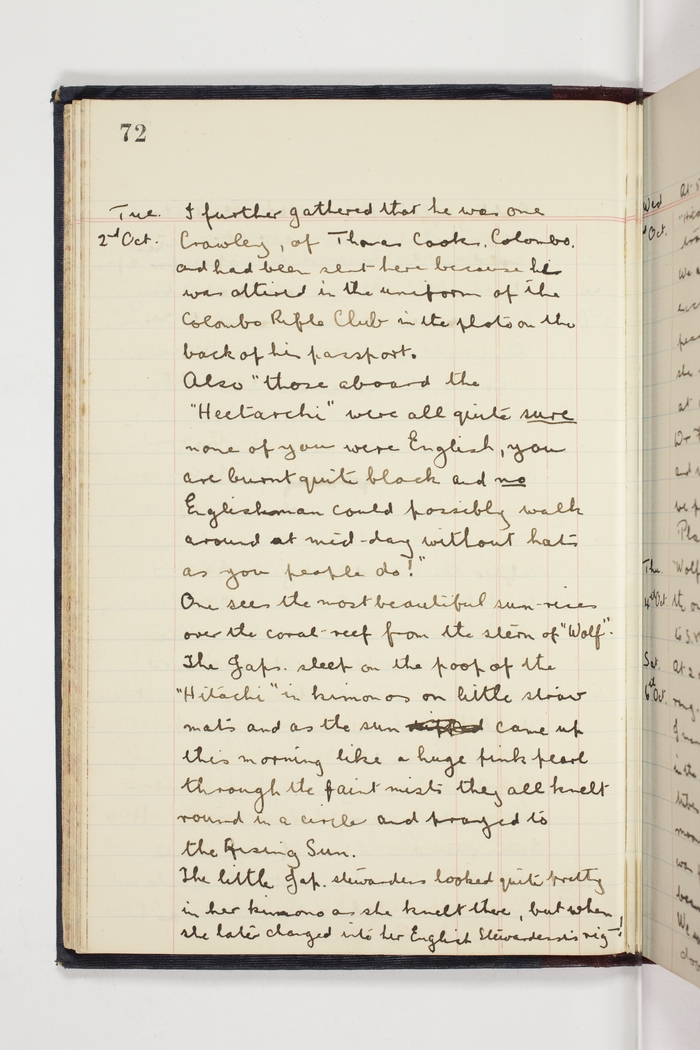 72
Tue. I further gathered that he was one
2nd Oct. Crawley, of Thomas Cooks, Colombo,
and had been sent here because he
was attired in the uniform of the
Colombo Rifle Club in the photo on the
back of his passport.
Also "those aboard the
"Heetarchi" were all quite sure
none of you were English, you
are burnt quite black and no
Englishman could possibly walk
around at mid-day without hats
as you people do!"
One sees the most beautiful sun-rises
over the coral-reef from the stern of "Wolf".
The Japs. sleep on the poop of the
"Hitachi" in kimonos on little straw
mats and as the sun came up
this morning like a huge pink pearl
through the faint mists they all knelt
round in a circle and prayed to
the Rising Sun.
The little Jap. stewardess looked quite pretty
in her kimono as she knelt there, but when
she later changed into her English Stewardess's rig-!
Wed
Oct.
at 5
we a
she
at
Dr
and
we p
Pla
Thu.
4th Oct.
"Wolf
the
to
Sat.
6th Oct.
At 2
in the
was
been
We